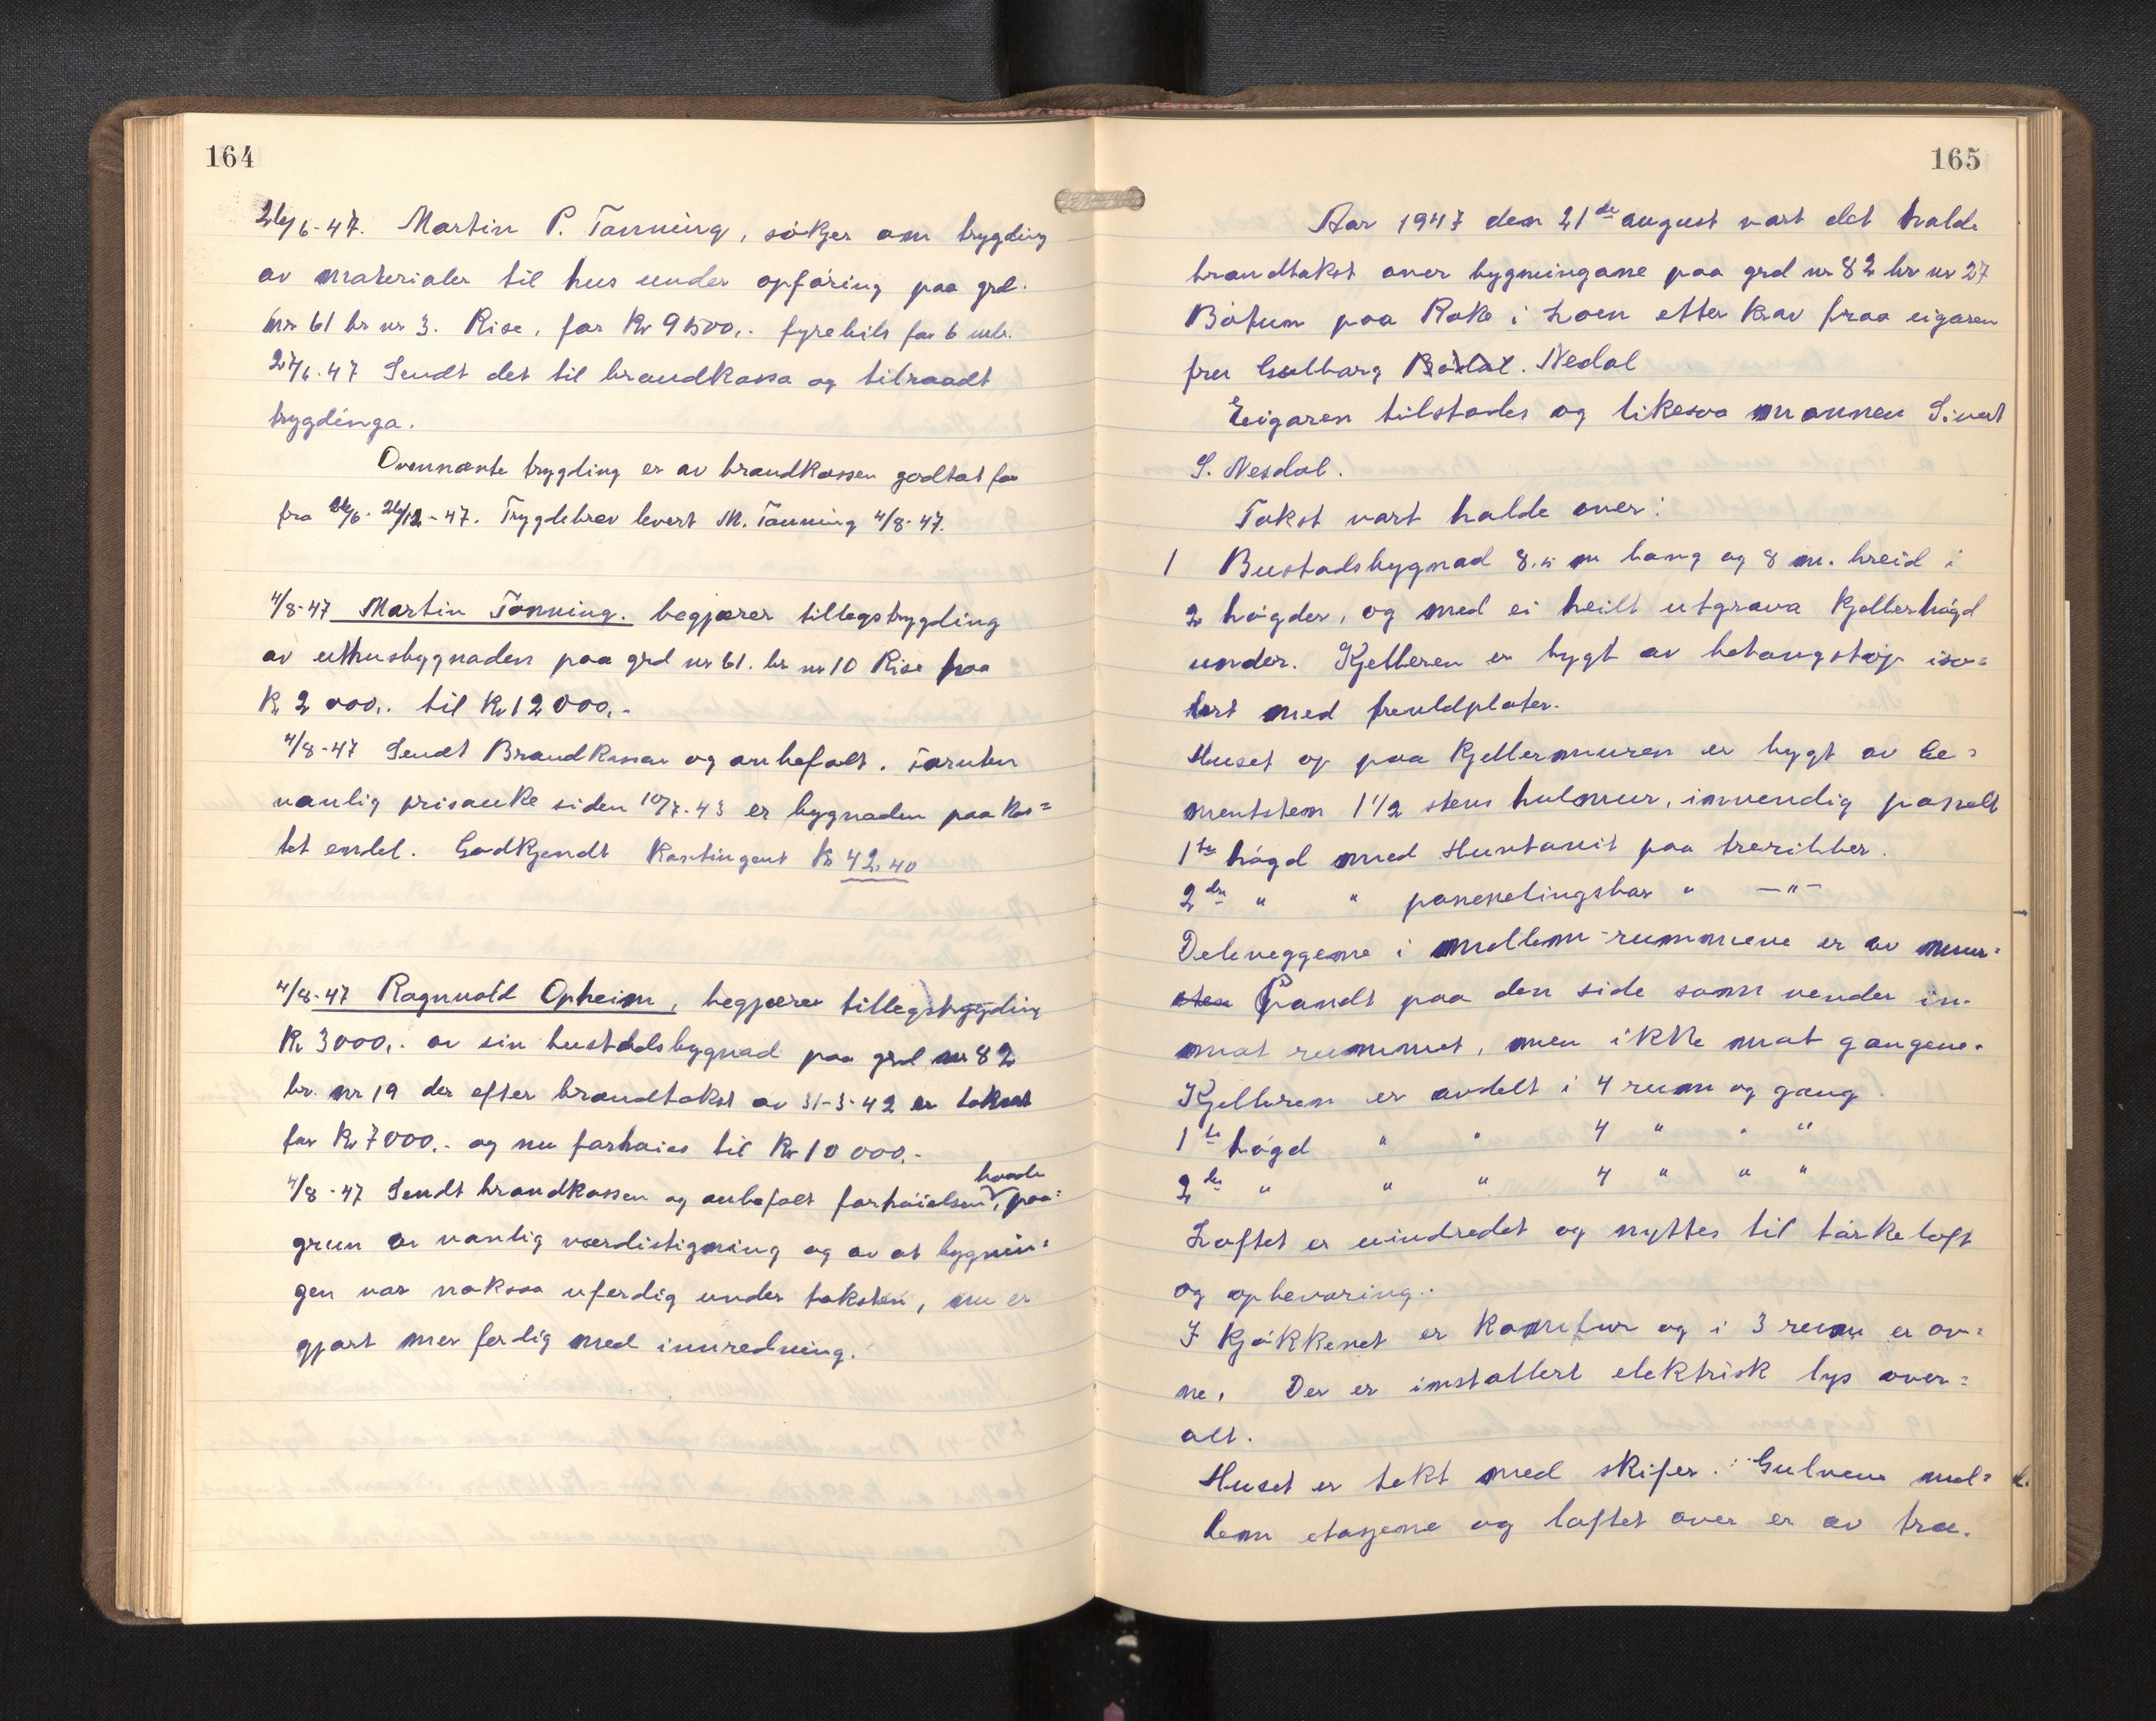 164
26/6-47. Martin P. Tonning, søkjer om trygding
av materialer til hus under opføring paa grd.
nr 61 br nr 3. Rise, for Kr 9500,- fyrebils for 6 md.
27/6-47 Sendt det til brandkassa og tilraadt
trygdinga.
Ovennævnte trygding er av brandkassen godtat for
fra 26/6-26/12-47. Trygdebrev levert M. Tonning 4/8-47.
4/8-47 Martin Tonning. begjærer tillegstrygding
av uthusbygnaden paa grd nr 61. br nr 10 Rise fraa
Kr 2 000,- til Kr 12 000,-
4/8-47 Sendt Brandkassen og anbefalt. Foruten
vanlig prisauke siden 10/7-43 er bygnaden paakos=
tet endel. Godkjendt Kontingent Kr 42,40
4/8-47 Ragnvald Opheim, begjærer tillegstrygding
Kr 3000,- av sin bustadsbygnad paa grd nr 82
br. nr 19 der efter brandtakst av 31-3-42 er takset
for Kr 7000,- og nu forhøies til Kr 10 000,-
4/8-47 Sendt brandkassen og anbefalt forhøielsen, baade paa=
grun av vanlig værdistigning og av at bygnin=
gen var noksaa uferdig under taksten, nu er
gjort mer ferdig med innredning.
165
Aar 1947 den 21de august vart det halde
brandtakst over bygningane paa grd nr 82 br nr 27
Bøtun paa Rake i Loen etter krav fraa eigaren
fru Gulborg Bødal. Nedal
Eigaren tilstades og likesaa mannen Sivert
S. Nesdal.
Takst vart halde over:
1 Bustadsbygnad 8.5 m lang og 8 m. breid i
2 høgder, og med ei heilt utgrava kjellerhøgd
under. Kjelleren er bygt av betongstøp iso=
lert med treuldplater.
Huset op paa kjellermuren er bygt av Ce=
mentsten 1 1/2 stens hulmur, innvendig panelt
1ste høgd med Huntonit paa treribber.
2dre " " panenelingsbor " —"—
Deleveggene i mellem-rummene er av mur=
sten Pandt paa den side som vender in-
mot rummet, men ikke mot gangene.
Kjelleren er avdelt i 4 rum og gang.
1ste høgd " " 4 " " "
2dre " " " 4 " " "
Loftet er uindredet og nyttes til tørkeloft
og opbevaring.
I kjøkkenet er komfur og i 3 rum er ov=
ne. Der er installert elektrisk lys over=
alt.
Huset er tekt med skifer. Gulvene mel=
lem etasjene og loftet over er av træ.